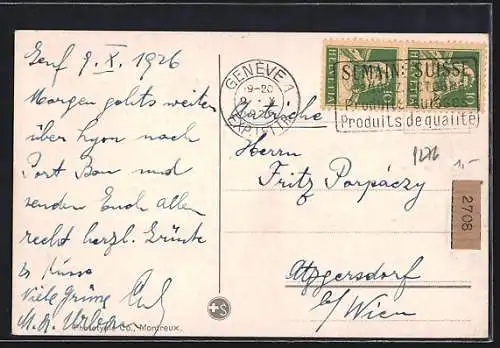 Genf 9. X. 1926
Morgen gehts weiter
über Lyon nach
Port Bou und
senden Euch allen
recht herzl. Grüsse
& Küsse
Viele Grüsse
Phototypie Co., Montreux.
GENÈVE 1
19-20
1926
HELVETIA
10
SEMAINE SUISSE
Produits suisses
Produits de qualité
Autriche
Herrn
Fritz Porpáczy
Atzgersdorf
b/ Wien
1276
1.-
2708